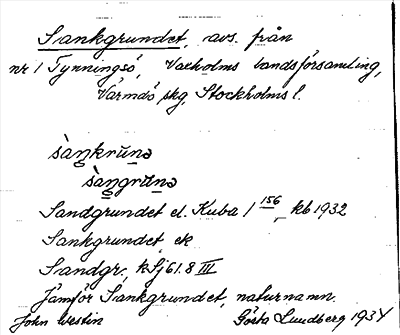 Sankgrundet, avs. från
nr 1 Tynningsö, Vaxholms landsförsamling,
Värmdö skg, Stockholms l.
sàŋkrūnə
sàŋgrūnə
Sandgrundet el. Kuba / 156, kb 1932
Sankgrundet ek
Sandgr. kSj 61.8 III
Jämför Sankgrundet, naturnamn.
John Westin Gösta Lundberg 1934